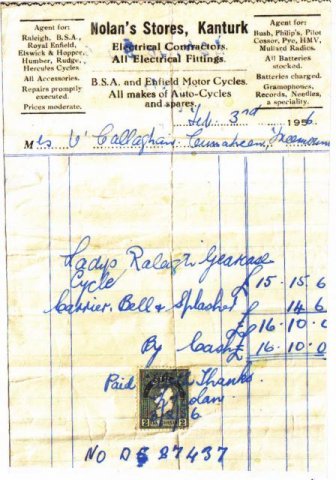 Nolan's Stores, Kanturk
Electrical Contractors.
All Electrical Fittings.
B.S.A. and Enfield Motor Cycles.
All makes of Auto-Cycles
and spares.
Agent for:
Raleigh, B.S.A.,
Royal Enfield,
Elswick & Hopper,
Humber, Rudge,
Hercules Cycles
All Accessories.
Repairs promptly
executed.
Prices moderate.
Agent for:
Bush, Philip's, Pilot
Cossor, Pye, HMV,
Mullard Radios.
All Batteries
stocked.
Batteries charged.
Gramophones,
Records, Needles,
a speciality.
Feb. 3rd 1956
Mrs O' Callaghan
Ladys Raleigh Gearcase
Cycle £15.15.6
Carrier, Bell & Splasher £ 14 6
£16.10.0
By Cash £ 16.10.0
Paid Thanks.
2 2
No D 87437